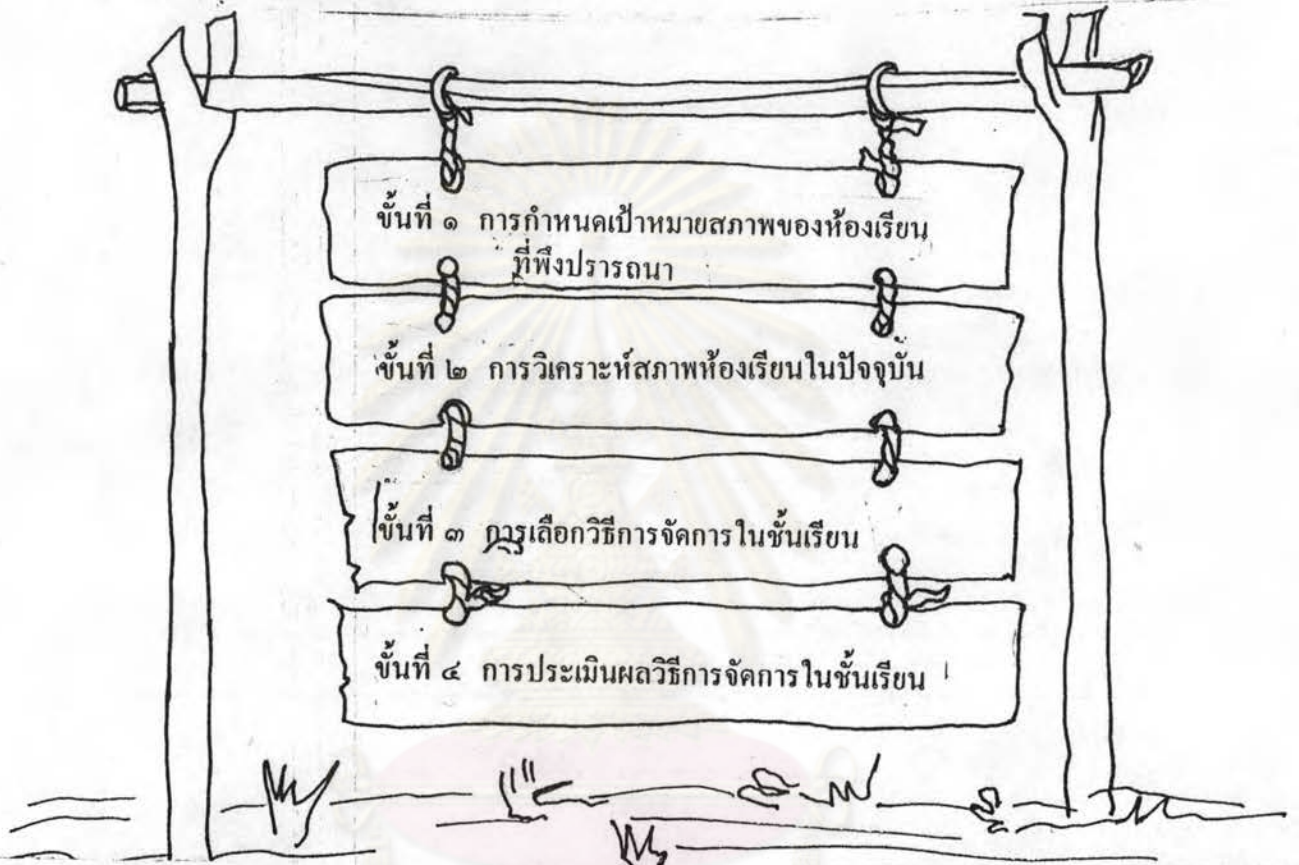 ขั้นที่ ๑ การกำหนดเป้าหมายสภาพของห้องเรียน
ที่พึงปรารถนา
ขั้นที่ ๒ การวิเคราะห์สภาพห้องเรียนในปัจจุบัน
ขั้นที่ ๓ การเลือกวิธีการจัดการในชั้นเรียน
ขั้นที่ ๔ การประเมินผลวิธีการจัดการในชั้นเรียน